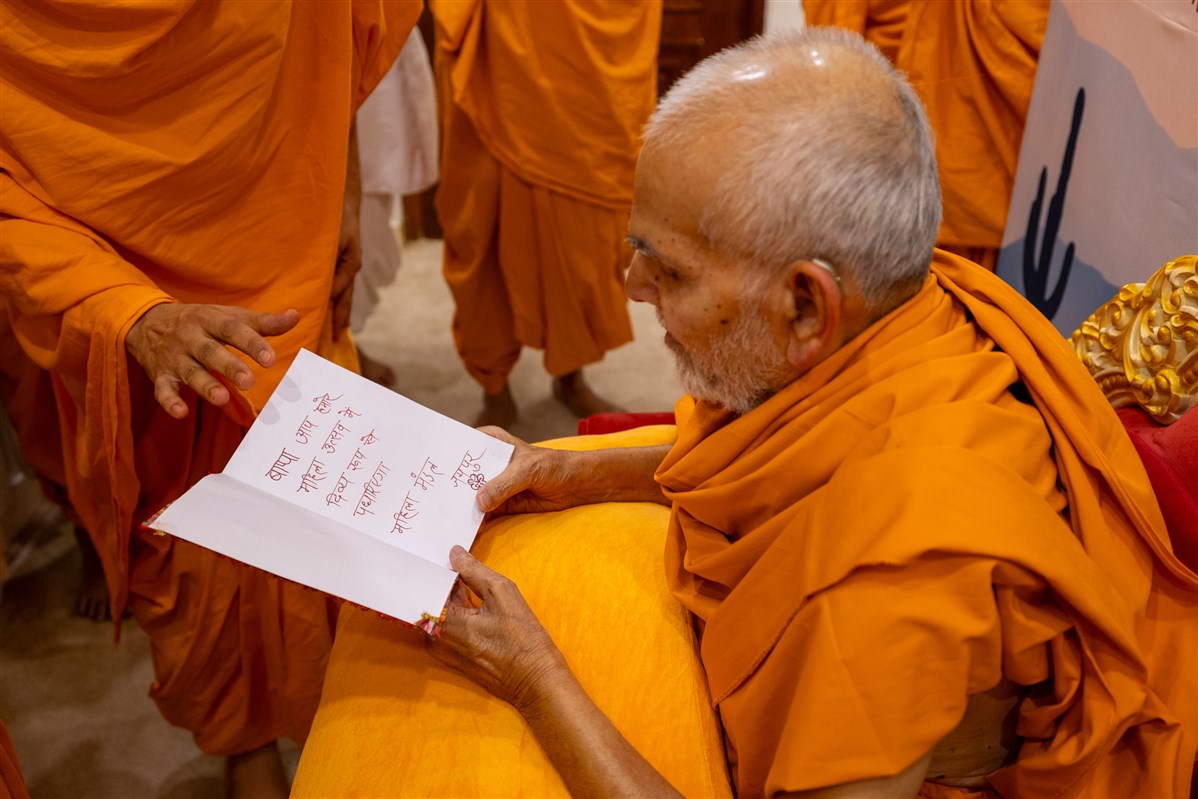 बापा आप हमारे
महिला उत्सव में
दिव्य रूप से
पधारिएगा
महिला मंडल
जयपुर